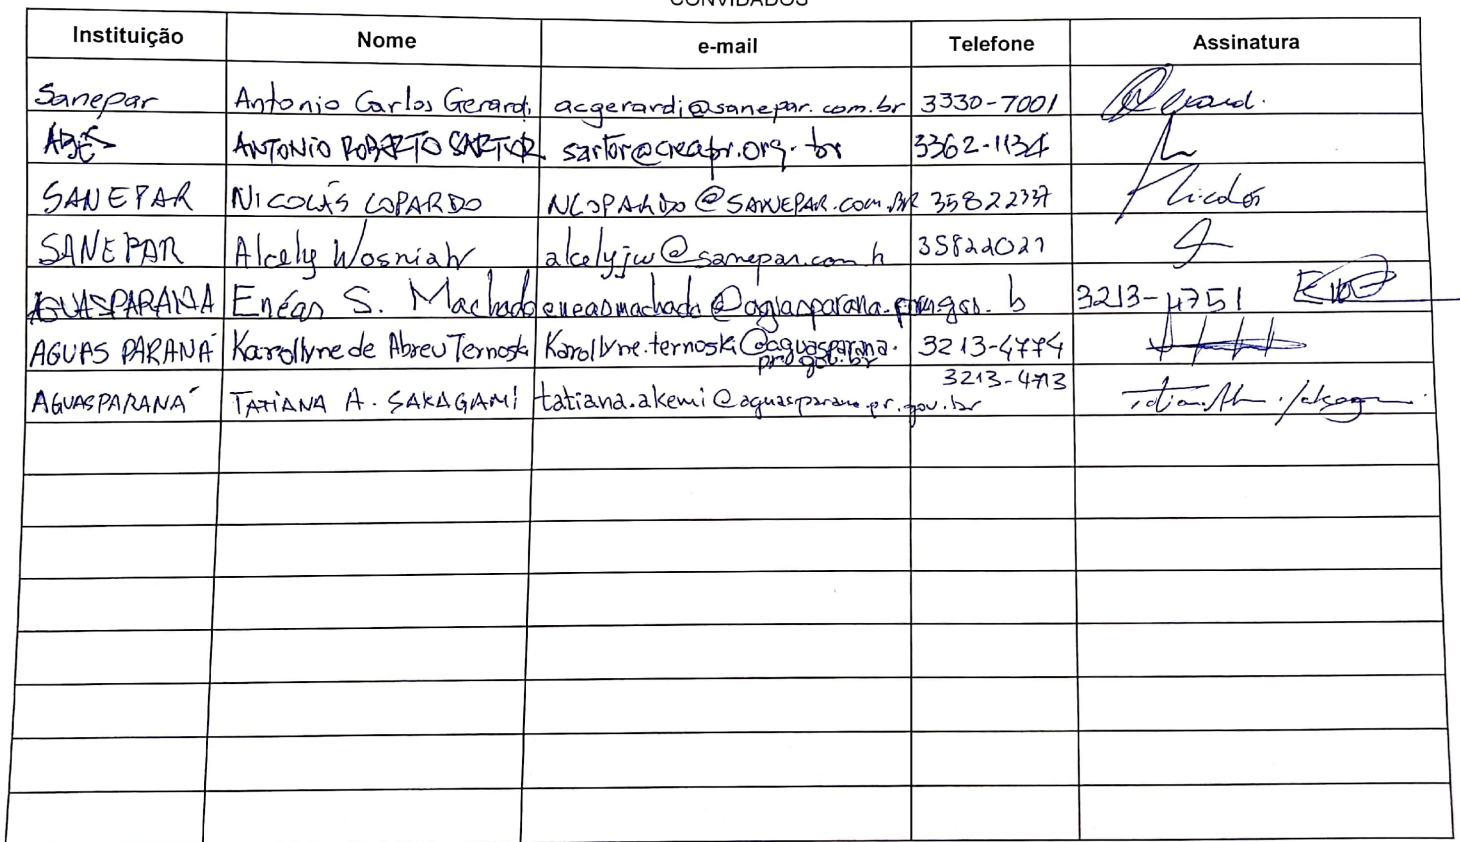 CONVIDADOS
Instituição Nome e-mail Telefone Assinatura
Sanepar Antonio Carlos Gerardi acgerardi@sanepar.com.br 3330-7001
ANTONIO ROBERTO SARTOR sartor@creapr.org.br 3362-1134
SANEPAR NICOLÁS LOPARDO NLOPARDO@SANEPAR.COM.BR 35822337 Nicolás
SANEPAR Alcely Wosniak alcelyjw@sanepar.com.br 35822021
AGUASPARANÁ Enéas S. Machado eneasmachado@aguasparana.pr.gov.b 3213-4751
AGUAS PARANÁ Karollyne de Abreu Ternoski Karollyne.ternoski@aguasparana. 3213-4774
pr.gov.br
AGUASPARANÁ TATIANA A. SAKAGAMI tatiana.akemi@aguasparana.pr.gov.br 3213-4713